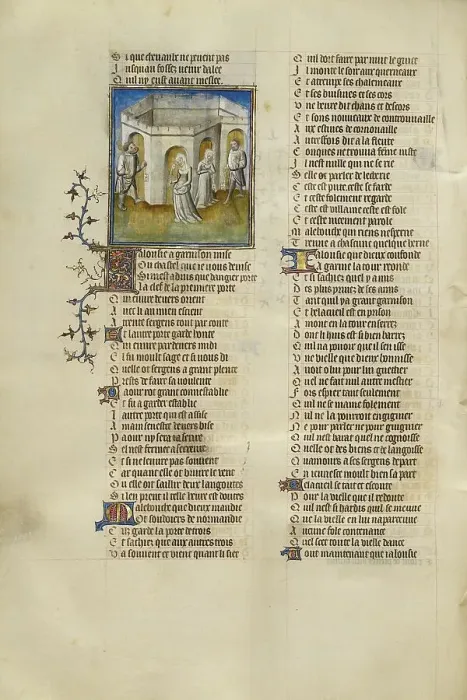 Si que cheuaulx ne pruent pas
Jusquau fossez venir dalee
Quil ny eust auant meslee
Jalousie a garnison mise
Ou chastel que ie vous deuise
Si mest aduis que dangier porte
La clef de la premiere porte
Qui euure deuers orient
Auec li au mien escient
A trente sergens tout par conte
Et lautre porte garde honte
Qui euure par deuers midi
El fu moult sage et si vous di
Quelle ot sergens a grant plente
Prests de faire sa voulente
Paour rot grant connestablie
Et fu a garder establie
Lautre porte qui est assise
A main senestre deuers bise
Paour ny sera ia seure
Sel nest fermee a serreure
Et si ne leuure pas souuent
Car quant elle ot bruire le vent
Ou elle oit saillir deux langoustes
Si len prent il telle heure est doutes
Malebouche que dieux maudie
Ot soudoiers de normandie
Garde la porte detrois
Et sachiez que aux autres trois
Va souuent et vient quant il siet
Quil doit faire par nuit le guiet
Jl monte le soir aux querneaux
Et atrempe ses chalemeaux
Et ses buisines et ses cors
Vne heure dit chans et descors
Et sons nouueaux de controuuaille
Aux estiues de cornouaille
Autreffois dit a la fleute
Conques ne trouua feme iuste
Jl nest nulle qui ne se rie
Selle ot parler de lecherie
Ceste est pute ceste se farde
Et ceste folement regarde
Ceste est villaine ceste est fole
Et ceste nicement parole
Malebouche qui riens nesperne
Treuue a chascune quelque herne
Jalousie que dieux confonde
A garnie la tour reonde
Et si sachiez quel y a mis
Des plus priuez de ses amis
Tant quil y a grant garnison
Et belacueil est en prison
Amont en la tour enserrez
Dont li huis est si bien barrez
Quil na pouoir que il sen isse
Vne vielle que dieux honnisse
Auoit o lui pour lui guetier
Quel ne fait nul autre mestier
Fors espier tant seulement
Quil ne se maine folement
Nul ne la pourroit engignier
Ne pour parler ne pour guignier
Quil nest barat quel ne cognoisse
Quelle ot des biens et de langoisse
Quamours a ses sergens depart
En ieunesse moult bien sa part
Belacueil se taist et escoute
Pour la vielle que il redoute
Quil nest si hardis quil se meuue
Que la vielle en lui napercueue
Aucune fole contenance
Quel scet toute la vielle dance
Tout maintenant que ialousie